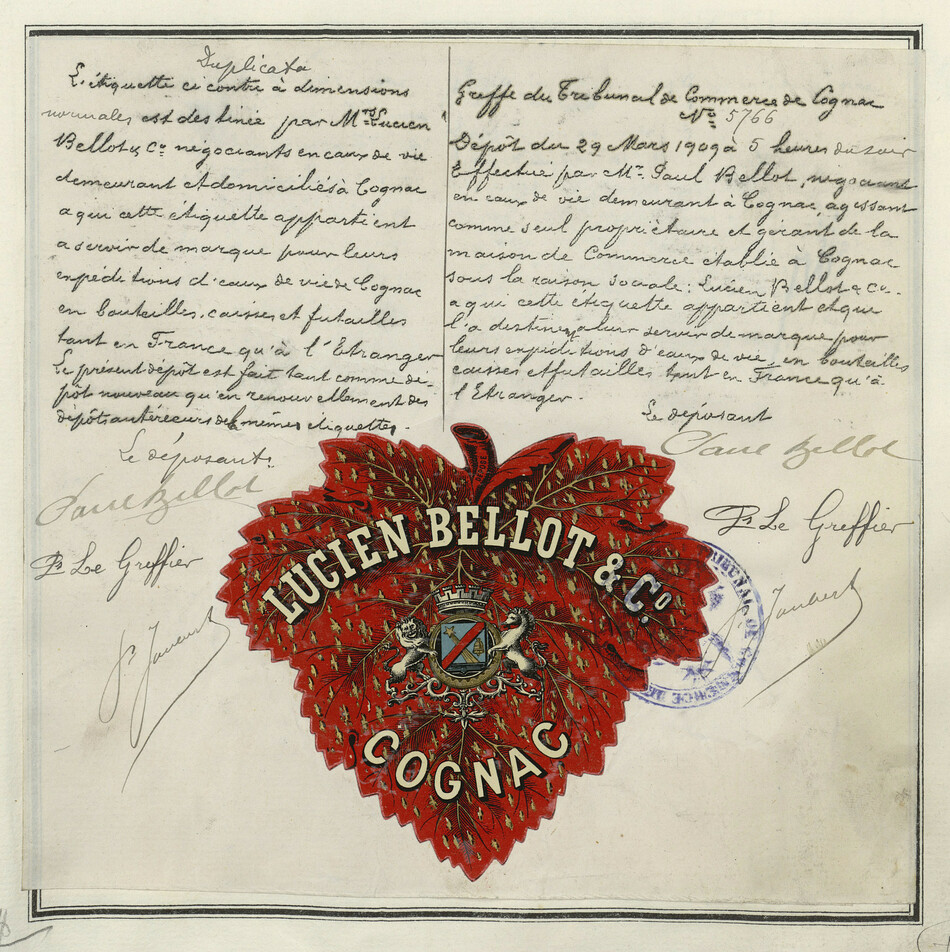 Duplicata
L'étiquette ci contre à dimensions
normales est destinée par M.rs Lucien
Bellot & Cº négociants en eaux de vie
demeurant et domiciliés à Cognac
a qui cette étiquette appartient
a servir de marque pour leurs
expéditions d'eaux de vie de Cognac
en bouteilles, caisses et futailles
tant en France qu'à l'Etranger
Le présent dépôt est fait tant comme dé-
pôt nouveau qu'en renouvellement des
dépôts antérieurs de mêmes étiquettes.
Le déposant
Paul Bellot
Pr Le Greffier
Greffe du Tribunal de Commerce de Cognac
Nº 5766
Dépôt du 29 Mars 1909 à 5 heures du soir
Effectué par Mr Paul Bellot, négociant
en eaux de vie demeurant à Cognac, agissant
comme seul propriètaire et gérant de la
maison de Commerce établie à Cognac
sous la raison sociale: Lucien Bellot & Cº.
a qui cette étiquette appartient et qui
l'a destinée a leur servir de marque pour
leurs expéditions d'eaux de vie en bouteilles
caisses et futailles tant en France qu'à
l'Etranger.
Le déposant
Paul Bellot
Pr Le Greffier
LUCIEN BELLOT & Cº.
COGNAC
TRIBUNAL DE COMMERCE DE